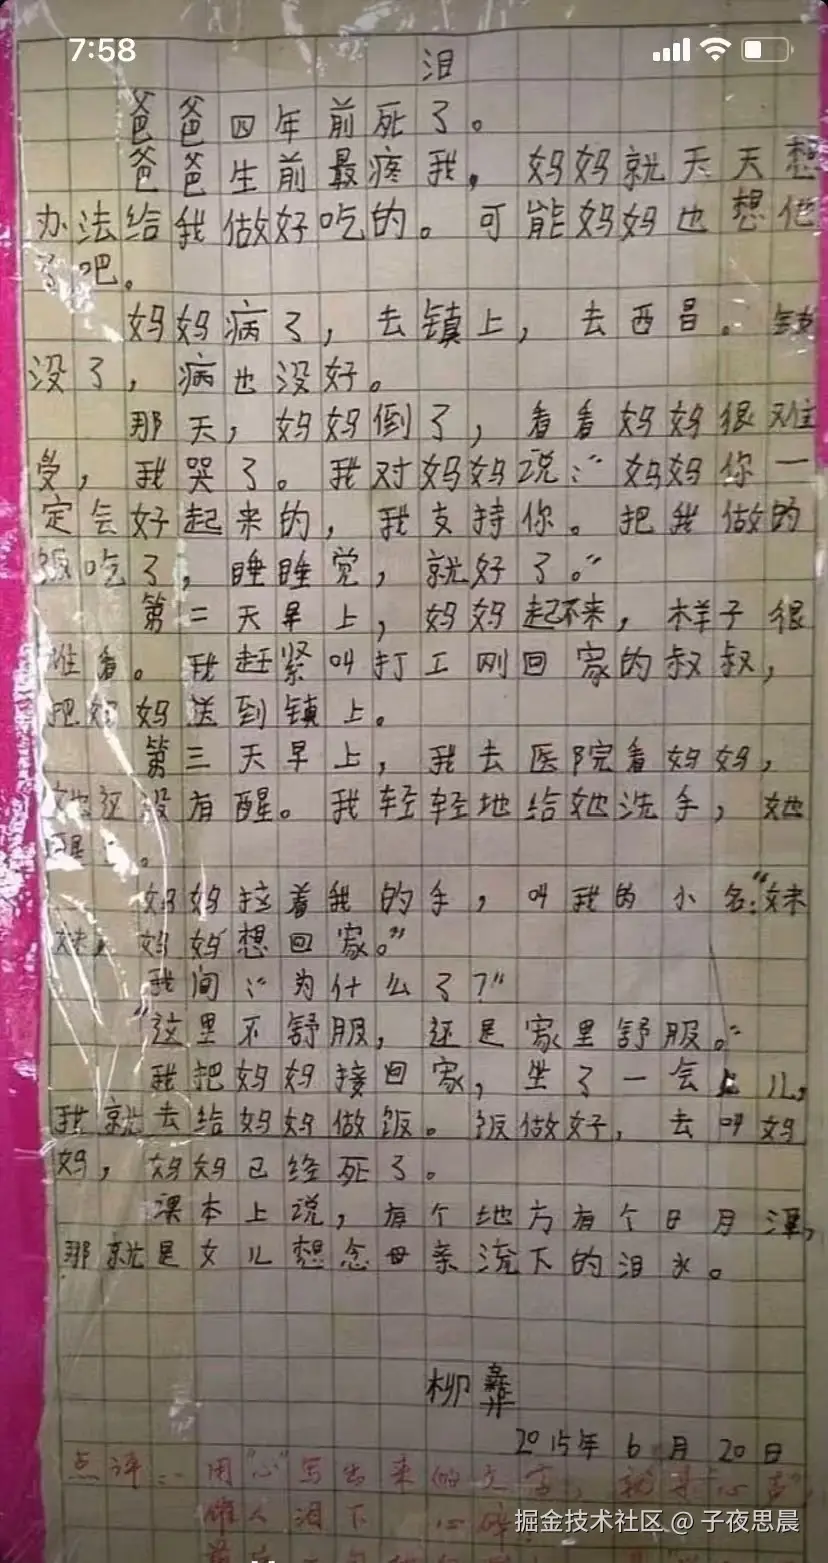 7:58
泪
爸爸四年前死了。
爸爸生前最疼我，妈妈就天天想
办法给我做好吃的。可能妈妈也想他
了吧。
妈妈病了，去镇上，去西昌。钱
没了，病也没好。
那天，妈妈倒了，看看妈妈很难
受，我哭了。我对妈妈说：“妈妈你一
定会好起来的，我支持你。把我做的
饭吃了，睡睡觉，就好了。”
第二天早上，妈妈起不来，样子很
难看。我赶紧叫打工刚回家的叔叔，
把妈妈送到镇上。
第三天早上，我去医院看妈妈，
她还没有醒。我轻轻地给她洗手，她
醒了。
妈妈拉着我的手，叫我的小名：“妹
妹，妈妈想回家。”
我问：“为什么了？”
“这里不舒服，还是家里舒服。”
我把妈妈接回家，坐了一会儿，
我就去给妈妈做饭。饭做好，去叫妈
妈，妈妈已经死了。
课本上说，有个地方有个日月潭，
那就是女儿想念母亲流下的泪水。
柳彝
2015年6月20日
点评：用“心”写出来的文字，就是心声，
催人泪下 心碎
掘金技术社区 @ 子夜思晨